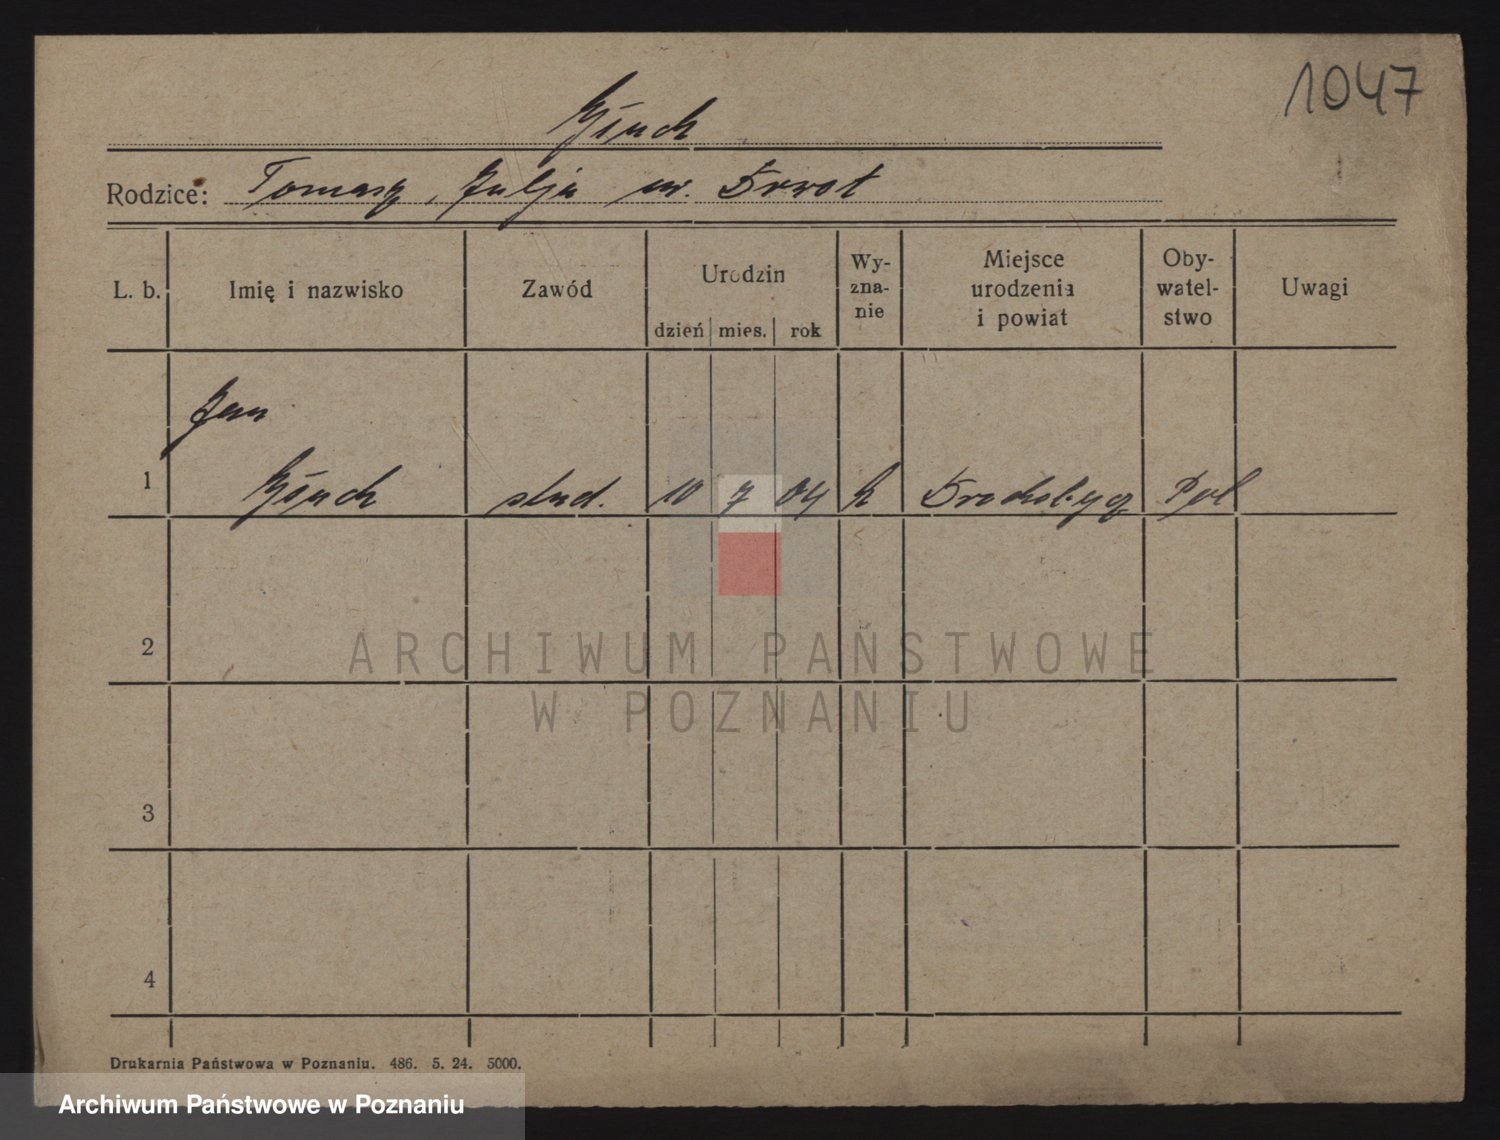 1047
Rodzice: Tomasz, Julja ur.
L. b. Imię i nazwisko Zawód Urodzin dzień mies. rok Wy-zna-nie Miejsce urodzenia i powiat Oby-watel-stwo Uwagi
Jan
1 stud. 10 7 04 k Drohobycz Pol
2
3
4
ARCHIWUM PAŃSTWOWE
W POZNANIU
Drukarnia Państwowa w Poznaniu. 486. 5. 24. 5000.
Archiwum Państwowe w Poznaniu